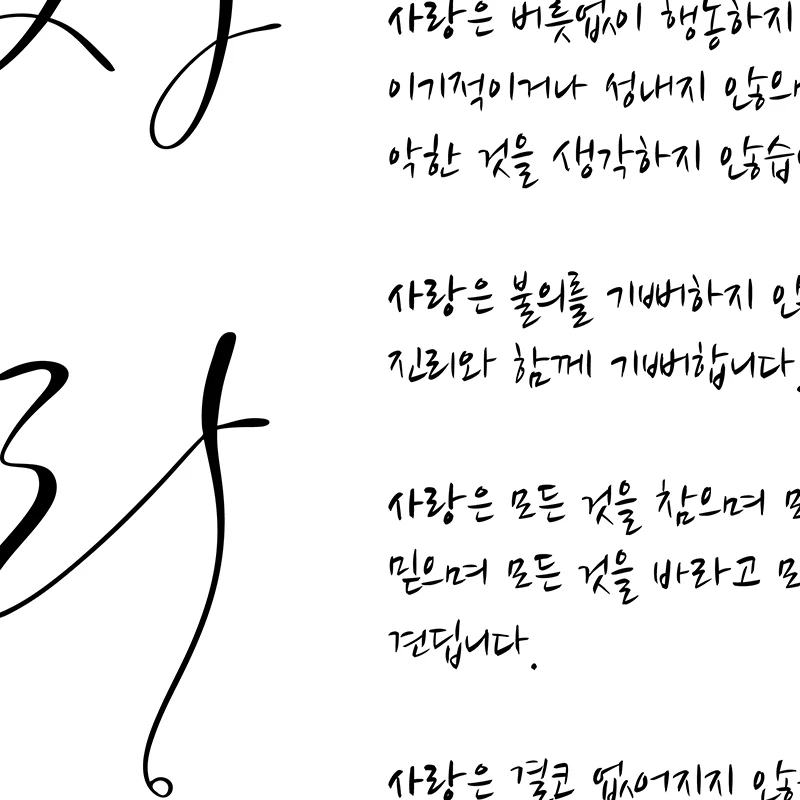 사랑은 버릇없이 행동하지
이기적이거나 성내지
악한 것을 생각하지
사랑은 불의를 기뻐하지
진리와 함께 기뻐합니다.
사랑은 모든 것을 참으며
믿으며 모든 것을 바라고
견딥니다.
사랑은 결코 없어지지